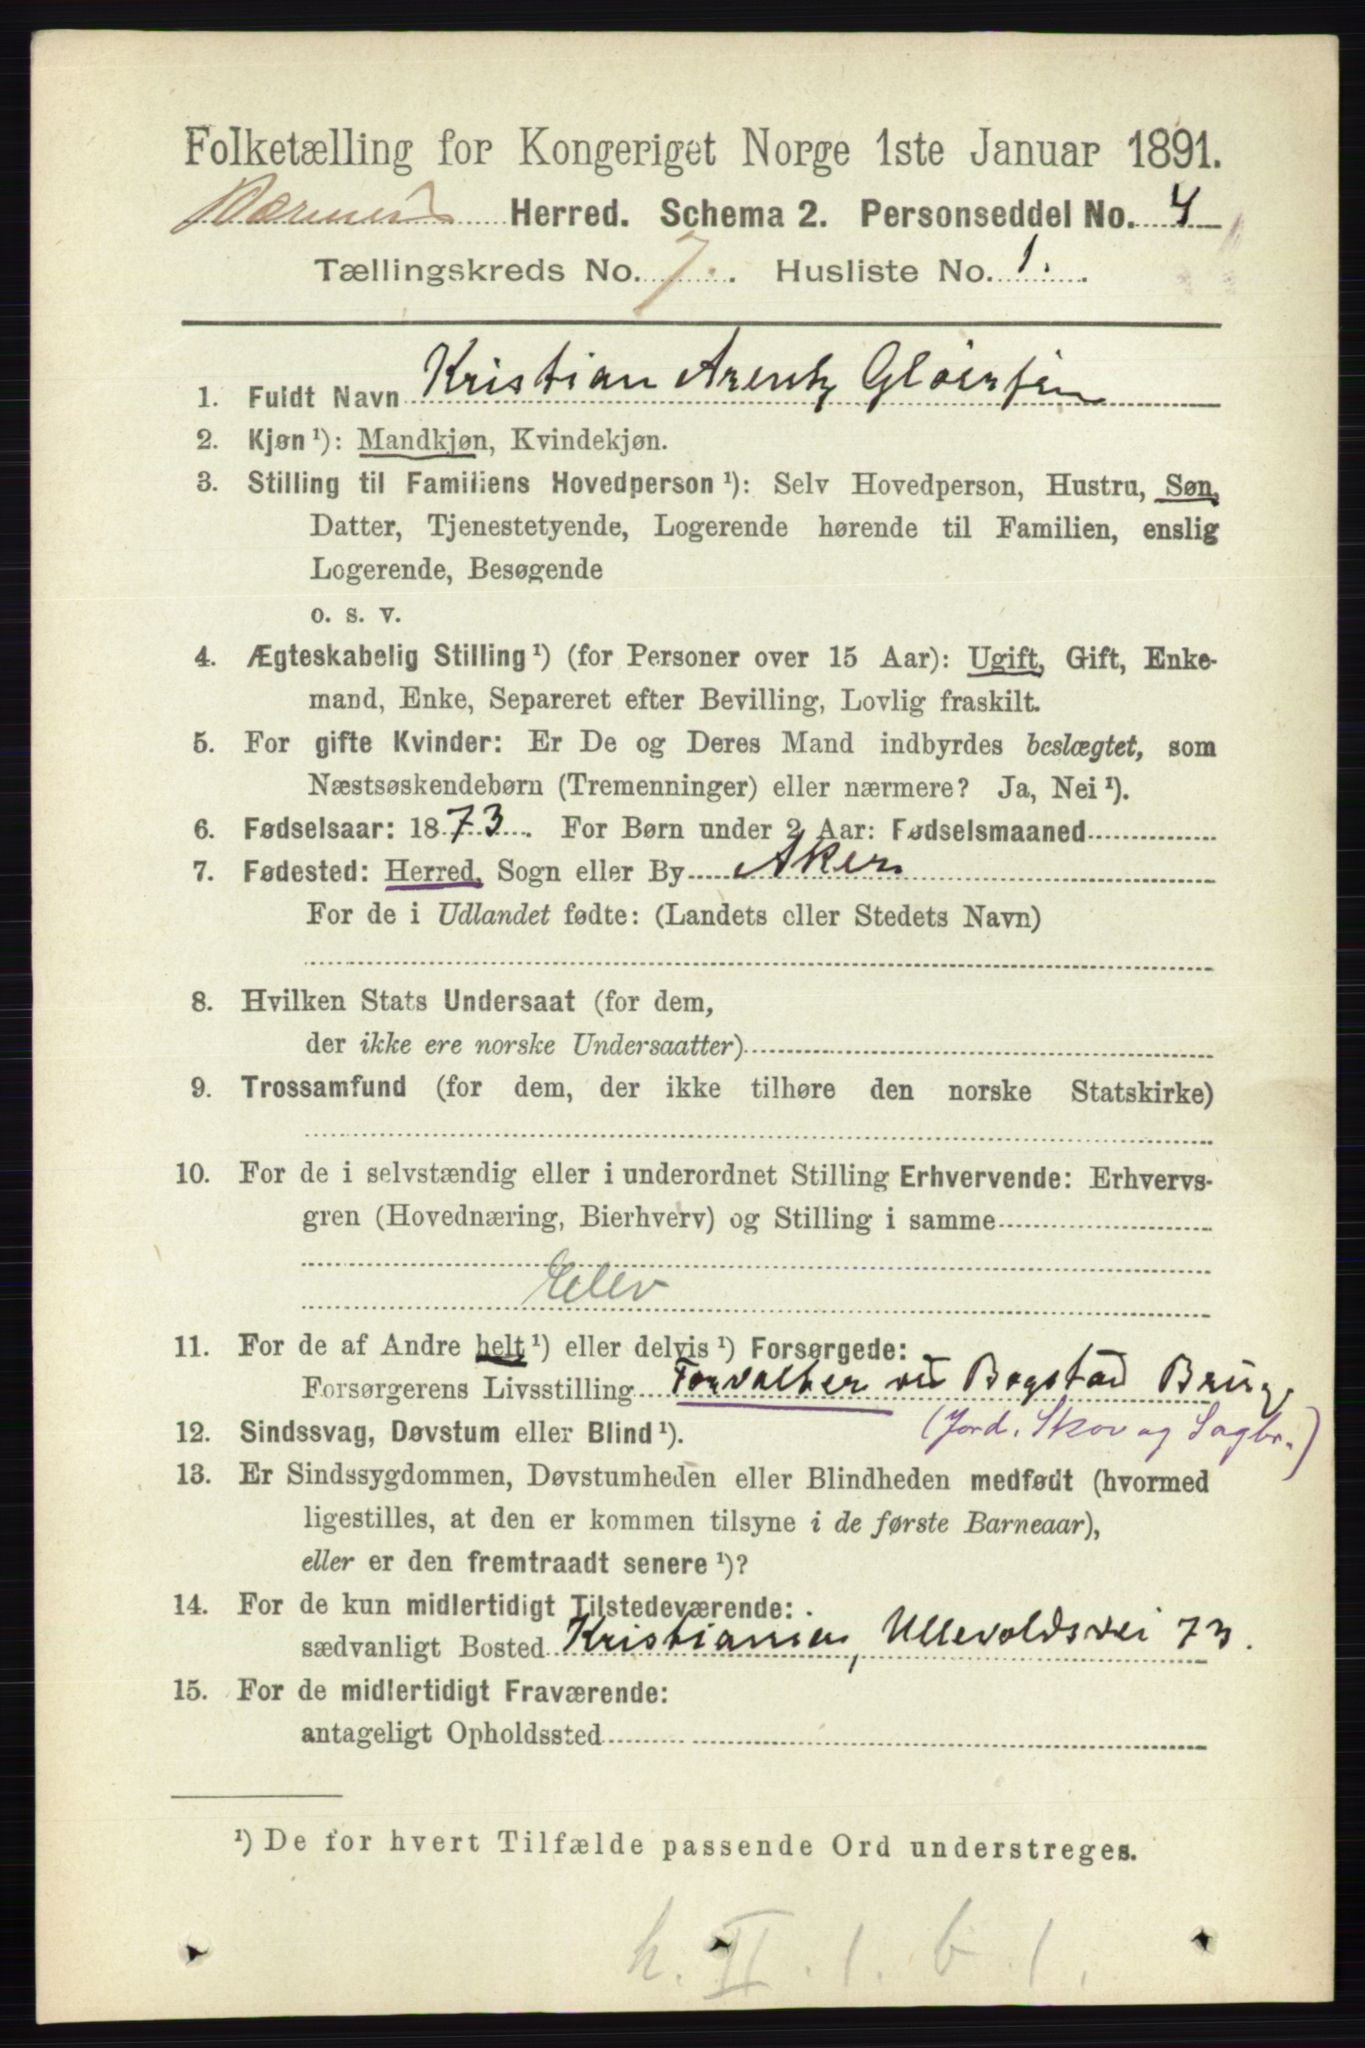 Folketælling for Kongeriget Norge 1ste Januar 1891.
Bærum Herred. Schema 2. Personseddel No. 4
Tællingskreds No. 7. Husliste No. 1.
1. Fuldt Navn Kristian Arentz Gløersen
2. Kjøn ¹): Mandkjøn, Kvindekjøn.
3. Stilling til Familiens Hovedperson ¹): Selv Hovedperson, Hustru, Søn,
Datter, Tjenestetyende, Logerende hørende til Familien, enslig
Logerende, Besøgende
o. s. v.
4. Ægteskabelig Stilling ¹) (for Personer over 15 Aar): Ugift, Gift, Enke-
mand, Enke, Separeret efter Bevilling, Lovlig fraskilt.
5. For gifte Kvinder: Er De og Deres Mand indbyrdes beslægtet, som
Næstsøskendebørn (Tremenninger) eller nærmere? Ja, Nei ¹).
6. Fødselsaar: 1873. For Børn under 2 Aar: Fødselsmaaned
7. Fødested: Herred, Sogn eller By Aker
For de i Udlandet fødte: (Landets eller Stedets Navn)
8. Hvilken Stats Undersaat (for dem,
der ikke ere norske Undersaatter)
9. Trossamfund (for dem, der ikke tilhøre den norske Statskirke)
10. For de i selvstændig eller i underordnet Stilling Erhvervende: Erhvervs-
gren (Hovednæring, Bierhverv) og Stilling i samme
Elev
11. For de af Andre helt ¹) eller delvis ¹) Forsørgede:
Forsørgerens Livsstilling Forvalter ved Bogstad Brug.
(Jord, Skov og Sagbr.)
12. Sindssvag, Døvstum eller Blind ¹).
13. Er Sindssygdommen, Døvstumheden eller Blindheden medfødt (hvormed
ligestilles, at den er kommen tilsyne i de første Barneaar),
eller er den fremtraadt senere ¹)?
14. For de kun midlertidigt Tilstedeværende:
sædvanligt Bosted Kristiania, Ullevoldsvei 73.
15. For de midlertidigt Fraværende:
antageligt Opholdssted
¹) De for hvert Tilfælde passende Ord understreges.
h. II. 1. b. 1.